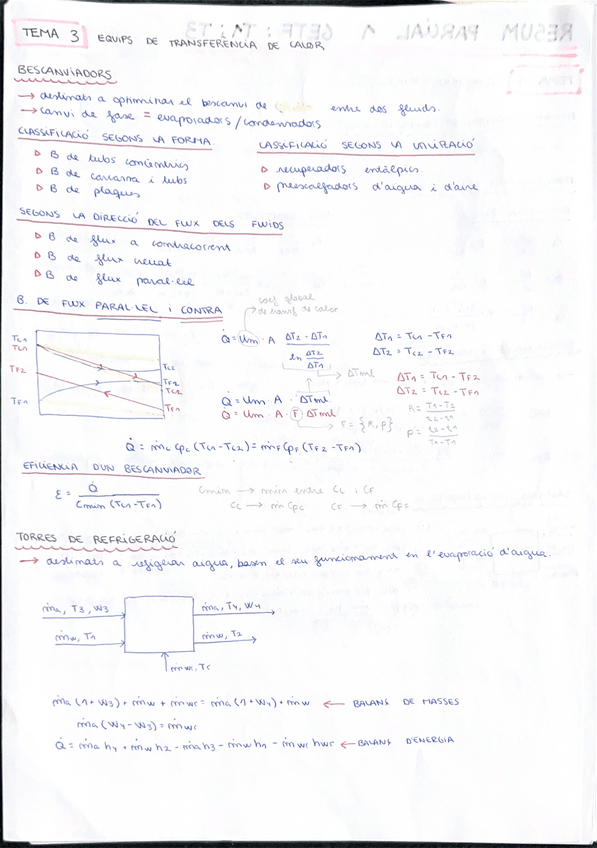 TEMA 3 EQUIPS DE TRANSFERÈNCIA DE CALOR
BESCANVIADORS
→ destinats a optimitzar el bescanvi de entre dos fluids.
→ canvi de fase = evaporadors/condensadors
CLASSIFICACIÓ SEGONS LA FORMA
▷ B de tubs concèntrics
▷ B de carcassa i tubs
▷ B de plaques
CLASSIFICACIÓ SEGONS LA UTILITZACIÓ
▷ recuperadors entàlpics.
▷ preescalfadors d'aigua i d'aire
SEGONS LA DIRECCIÓ DEL FLUX DELS FLUIDS
▷ B de flux a contracorrent
▷ B de flux creuat
▷ B de flux paral·lel
B. DE FLUX PARAL·LEL i CONTRA
coef global
de transf de calor
TC1
TC1
TF2
TC2
TF2
TC2
TF1
Q̇ = Um · A (ΔT2 - ΔT1) / (ln ΔT2/ΔT1)
→ ΔTml
ΔT1 = TC1 - TF1
ΔT2 = TC2 - TF2
Q̇ = Um · A · ΔTml
Q̇ = Um · A · F ΔTml
→ F = {R, P}
ΔT1 = TC1 - TF2
ΔT2 = TC2 - TF1
R = (T1 - T2) / (t2 - t1)
P = (t2 - t1) / (T1 - t1)
Q̇ = ṁc Cpc (TC1 - TC2) = ṁF CpF (TF2 - TF1)
EFICIÈNCIA D'UN BESCANVIADOR
ε = Q̇ / (Cmin (TC1 - TF1))
Cmin → mín entre CC i CF
CC → ṁ Cpc CF → ṁ CpF
TORRES DE REFRIGERACIÓ
→ destinats a refrigerar aigua, basen el seu funcionament en l'evaporació d'aigua.
ṁa, T3, W3
ṁa, T4, W4
ṁw, T1
ṁw, T2
ṁwr, Tr
ṁa (1 + W3) + ṁw + ṁwr = ṁa (1 + W4) + ṁw ← BALANS DE MASSES
ṁa (W4 - W3) = ṁwr
Q̇ = ṁa h4 + ṁw h2 - ṁa h3 - ṁw h1 - ṁwr hwr ← BALANS D'ENERGIA